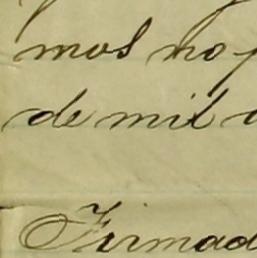 mos no p
de mil
Firmad